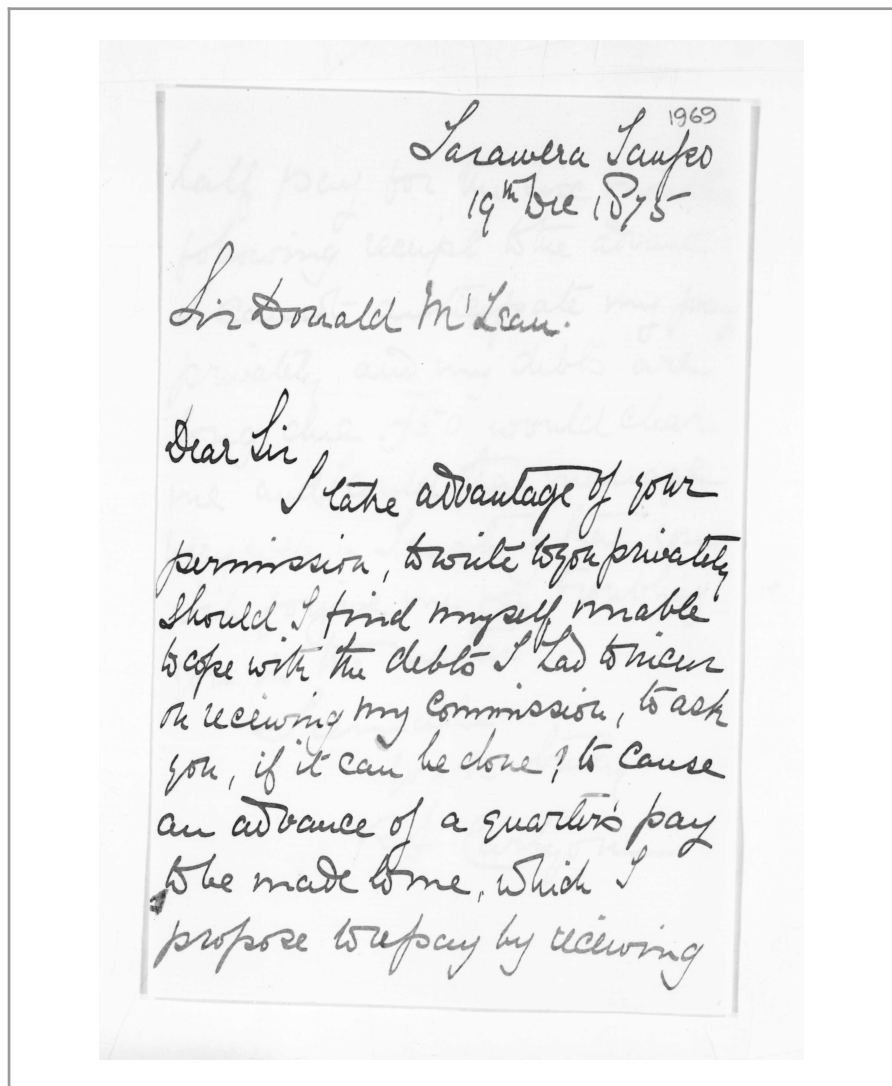 1969
Tarawera Taupo
19th Dec 1875
Sir Donald McLean.
Dear Sir
I take advantage of your
permission, to write to you privately
should I find myself unable
to cope with the debts I had to incur
on receiving my Commission, to ask
you, if it can be done? to cause
an advance of a quarter's pay
to be made to me, which I
propose to repay by receiving